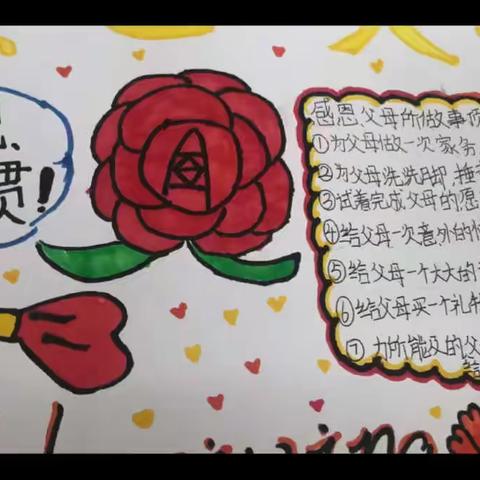 惯!
感恩父母所做事
①为父母做一次家务
②为父母洗洗脚,捶
③试着完成父母的愿
④给父母一次意外的
⑤给父母一个大大的
⑥给父母买一个礼
⑦力所能及的父